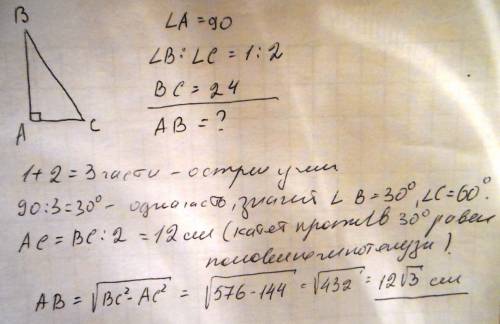 B
∠A = 90
∠B : ∠C = 1 : 2
BC = 24
A
C
AB = ?
1 + 2 = 3 части - острые углы
90 : 3 = 30° - одна часть, значит ∠B = 30°, ∠C = 60°.
AC = BC : 2 = 12 см (катет против ∠ в 30° равен
половине гипотенузы).
AB = √BC² - AC² = √576 - 144 = √432 = 12√3 см